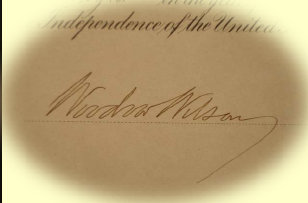 Independence of the United
Woodrow Wilson